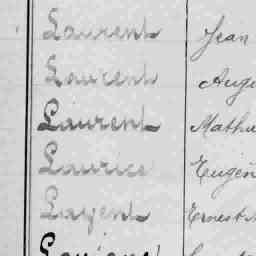 Laurent Jean
Laurent Auge
Laurent Mathu
Laurice Eugèn
Layent Ernest